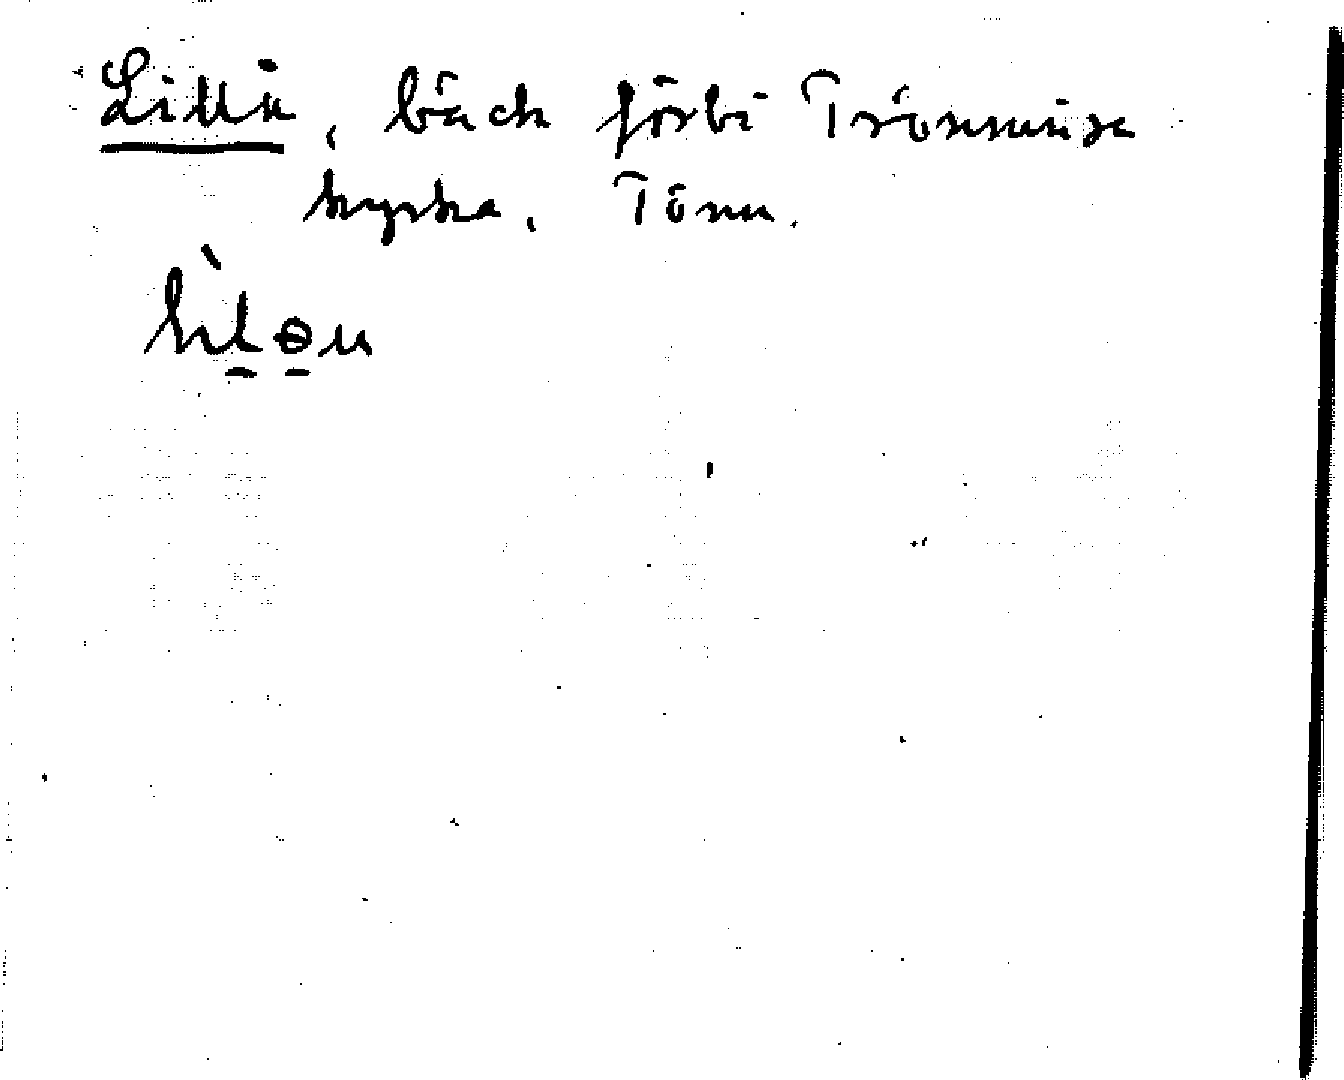 Lillå, bäck förbi Trönninge
kyrka, Tönn.